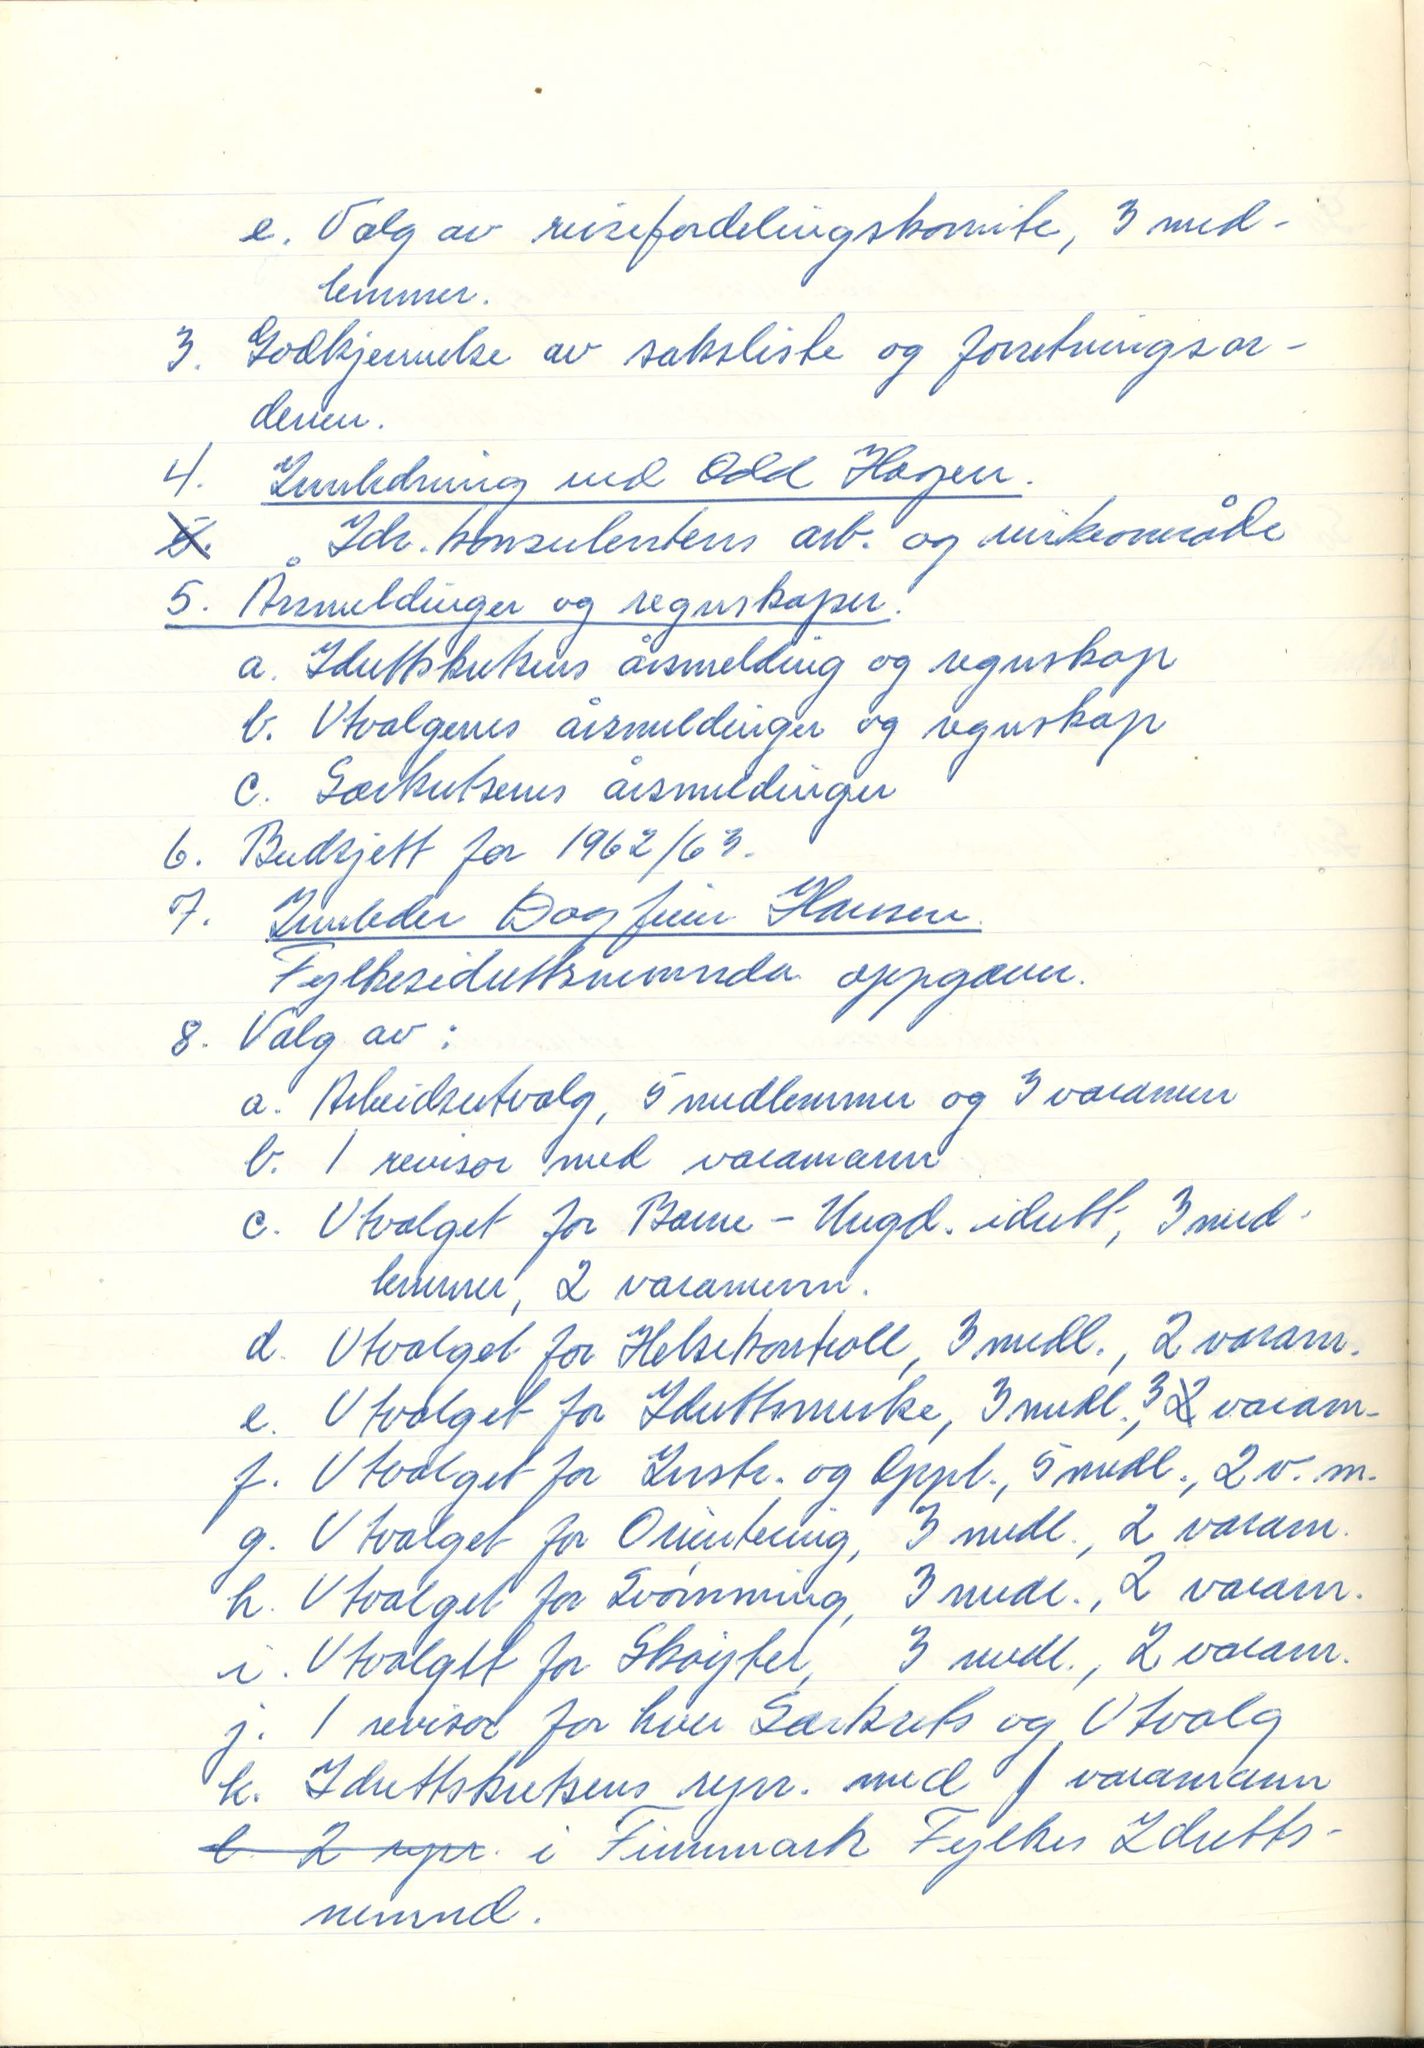 e. Valg av reisefordelingskomite, 3 med-
lemmer.
3. Godkjennelse av saksliste og forretningsor-
denen.
4. Innledning ved Odd Hagen.
5. Idr. konsulentens arb. og virkeområde
5. Årsmeldinger og regnskaper.
a. Idrettskretsens årsmelding og regnskap
b. Utvalgenes årsmeldinger og regnskap
c. Særkretsenes årsmeldinger
6. Budsjett for 1962/63.
7. Innleder Dagfinn Hansen.
Fylkesidrettsnemnda oppgaver.
8. Valg av:
a. Arbeidsutvalg, 5 medlemmer og 3 varamenn
b. 1 revisor med varamann
c. Utvalget for Barne- Ungd. idrett, 3 med-
lemmer, 2 varamenn.
d. Utvalget for Helsekontroll, 3 medl., 2 varam.
e. Utvalget for Idrettsmerke, 3 medl., 3 2 varam.
f. Utvalget for Instr. og Oppl., 5 medl., 2 v. m.
g. Utvalget for Orientering, 3 medl., 2 varam.
h. Utvalget for Svømming, 3 medl., 2 varam.
i. Utvalget for Skøyter, 3 medl., 2 varam.
j. 1 revisor for hver Særkrets og Utvalg
k. Idrettskretsens repr. med 1 varamann
l. 2 repr. i Finnmark Fylkes Idretts-
nemnd.